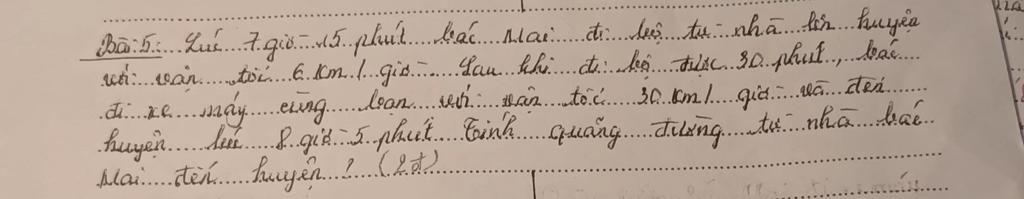 Bài 5: Lúc 7 giờ 15 phút bác Mai đi bộ từ nhà lên huyện
với vận tốc 6 km / giờ. Sau khi đi bộ được 30 phút, bác
đi xe máy cùng bạn với vận tốc 30 km / giờ và đến
huyện lúc 8 giờ 5 phút. Tính quãng đường từ nhà bác
Mai đến huyện ? (2đ)